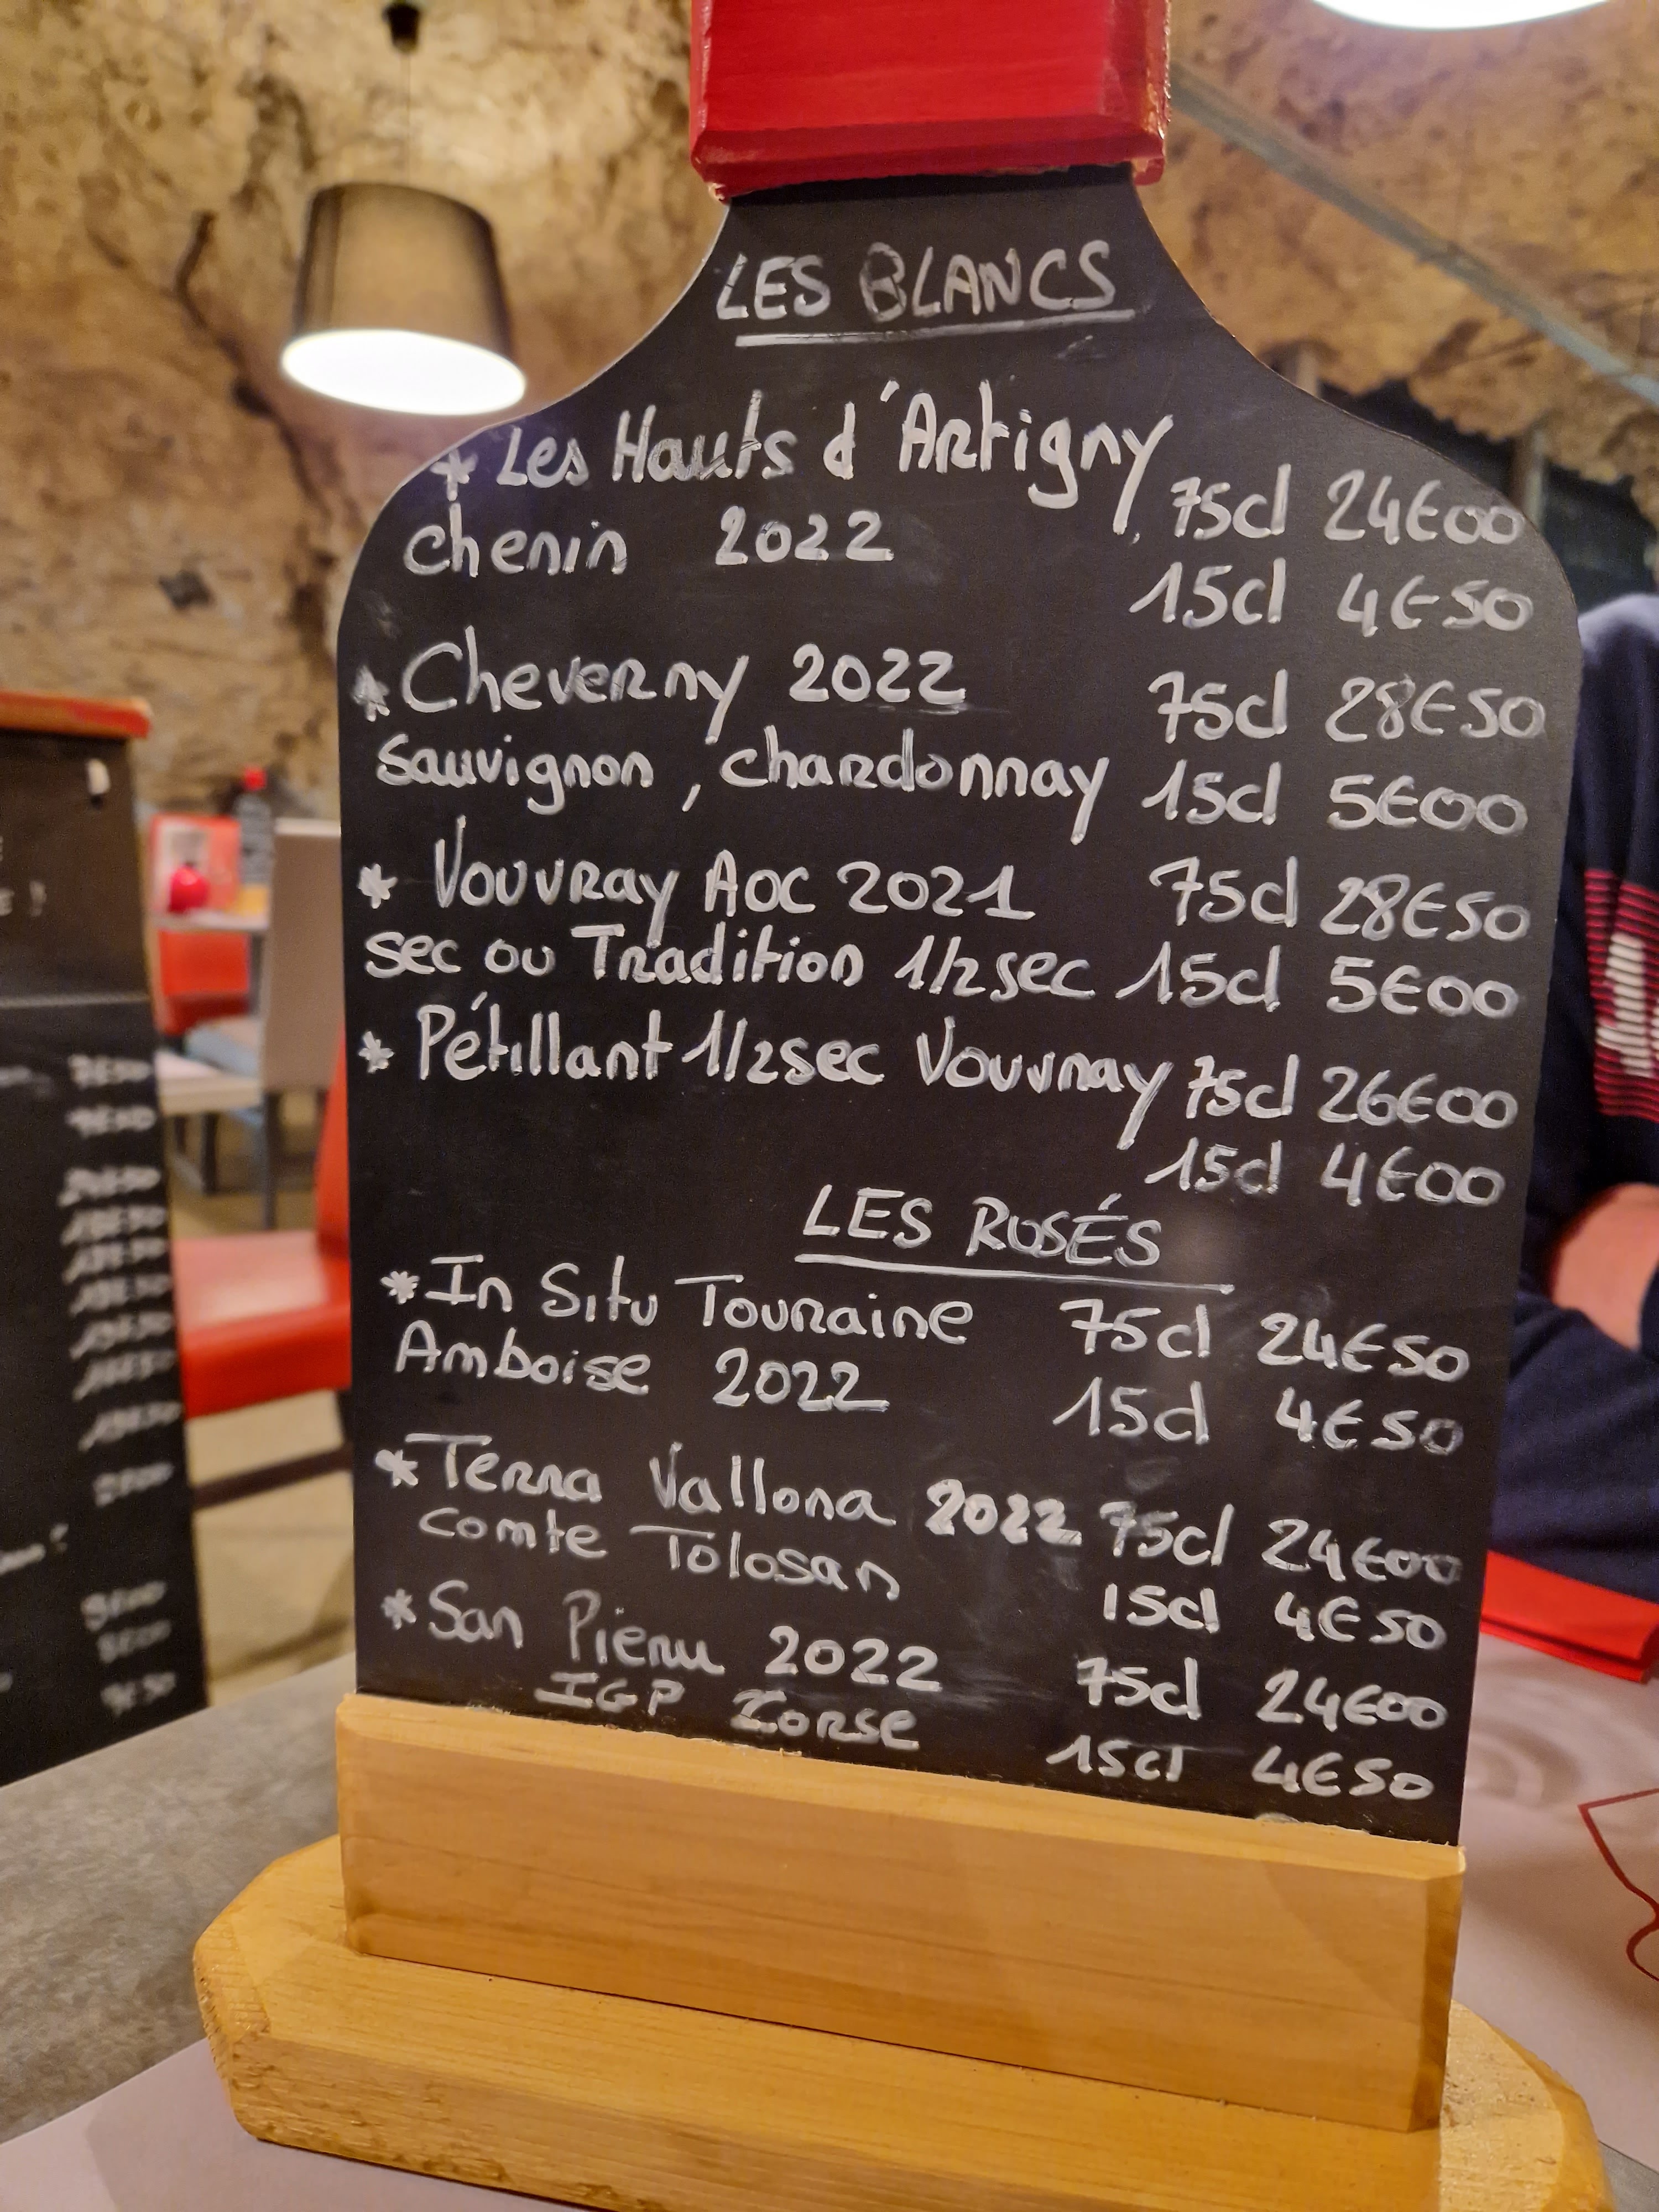 LES BLANCS
* Les Hauts d'Artigny 75cl 24€00
chenin 2022
15cl 4€50
* Cheverny 2022 75cl 28€50
Sauvignon, chardonnay 15cl 5€00
* Vouvray AOC 2021 75cl 28€50
sec ou Tradition 1/2sec 15cl 5€00
* Pétillant 1/2sec Vouvray 75cl 26€00
15cl 4€00
LES ROSÉS
* In Situ Touraine 75cl 24€50
Amboise 2022 15cl 4€50
* Terra Vallona 2022 75cl 24€00
comte Tolosan 15cl 4€50
* San Pierru 2022 75cl 24€00
IGP Corse 15cl 4€50